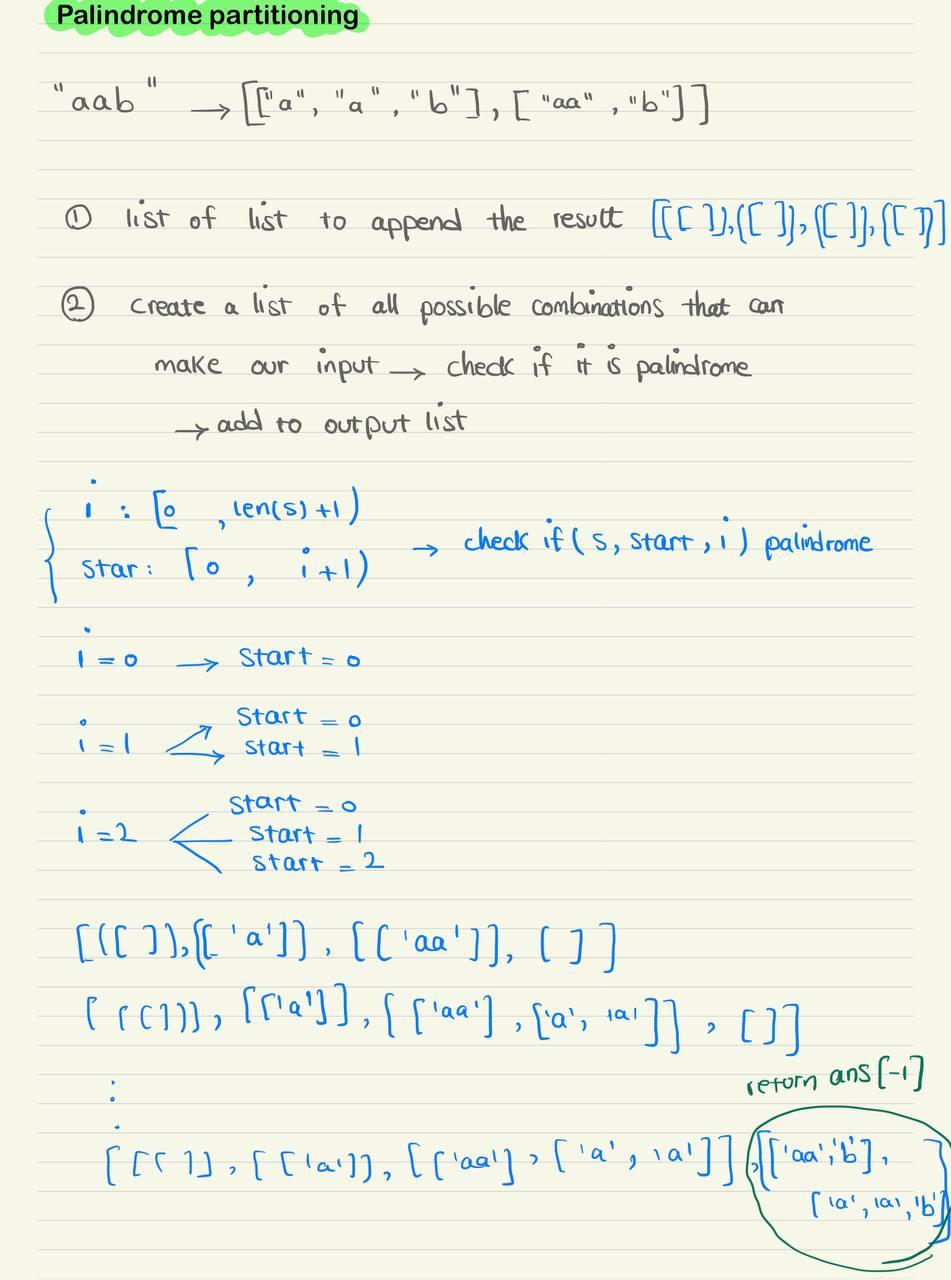 Palindrome partitioning
"aab" → [["a", "a", "b"], ["aa", "b"]]
① list of list to append the result [[[ ]],[[ ]],[[ ]],[[ ]]]
② create a list of all possible combinations that can
make our input → check if it is palindrome
→ add to output list
i : [0 , len(s)+1)
star: [0 , i+1)
→ check if (s, start, i) palindrome
i = 0 → start = 0
start = 0
i = 1 start = 1
start = 0
i = 2 start = 1
start = 2
[[[ ]],[['a']], [['aa']], [ ]]
[[[ ]], [['a']], [['aa'], ['a', 'a']], [ ]]
:
.
return ans[-1]
[[[ ]], [['a']], [['aa'], ['a', 'a']],[['aa','b'],
['a', 'a', 'b']]]